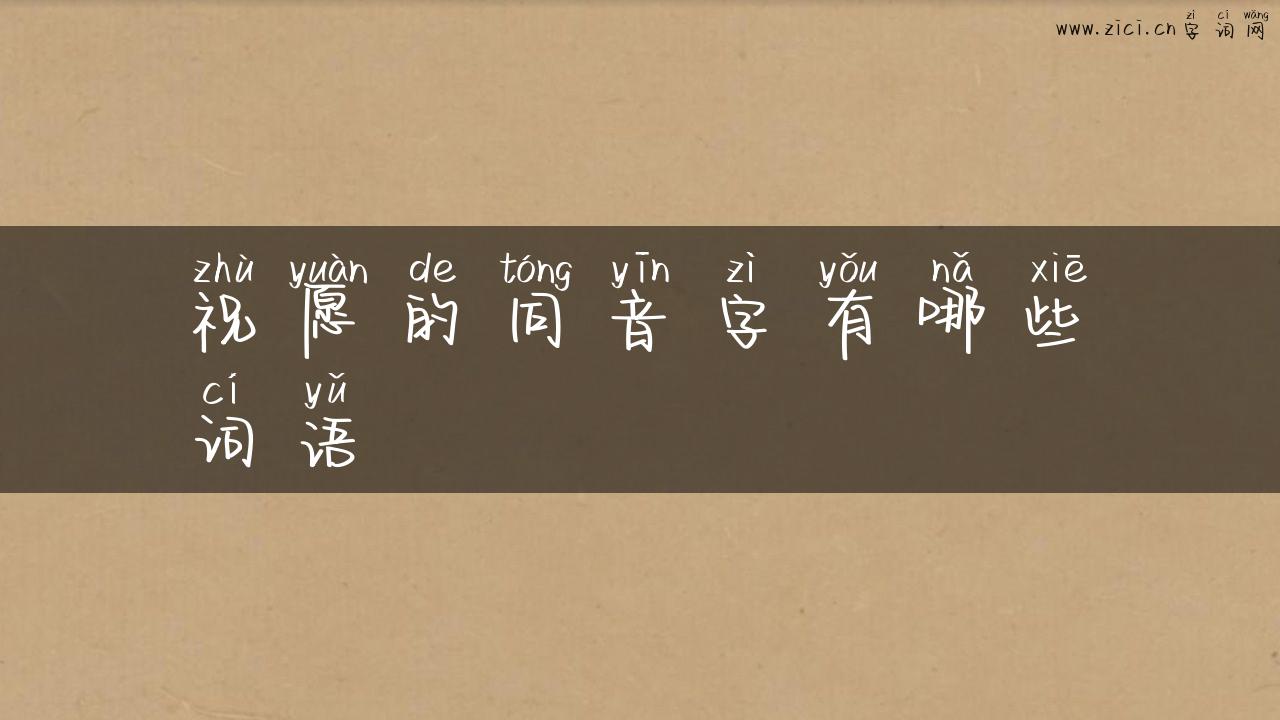 zì cí wǎng
www.zici.cn 字 词 网
zhù yuàn de tóng yīn zì yǒu nǎ xiē
祝 愿 的 同 音 字 有 哪 些
cí yǔ
词 语